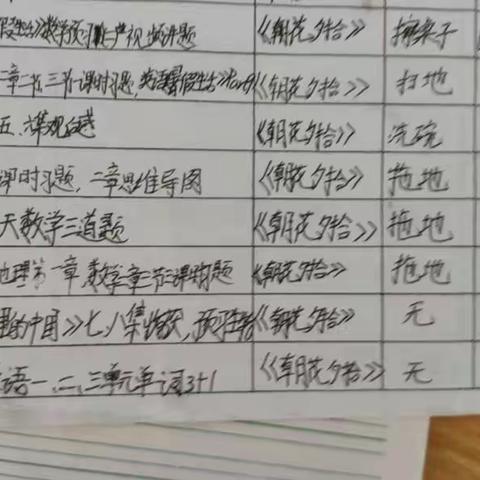 假生活》数学预习 视频并题 《朝花夕拾》 擦桌子
二章一节、三节课时习题, 英语暑假生活 《朝花夕拾》 扫地
五、课观后感 《朝花夕拾》 洗碗
课时习题, 二章思维导图 《朝花夕拾》 拖地
天数学三道题 《朝花夕拾》 拖地
地理第一章, 数学章节课时题 《朝花夕拾》 拖地
的中国》七、八集 预习生物 《朝花夕拾》 无
语一、二、三单元单词3+1 《朝花夕拾》 无